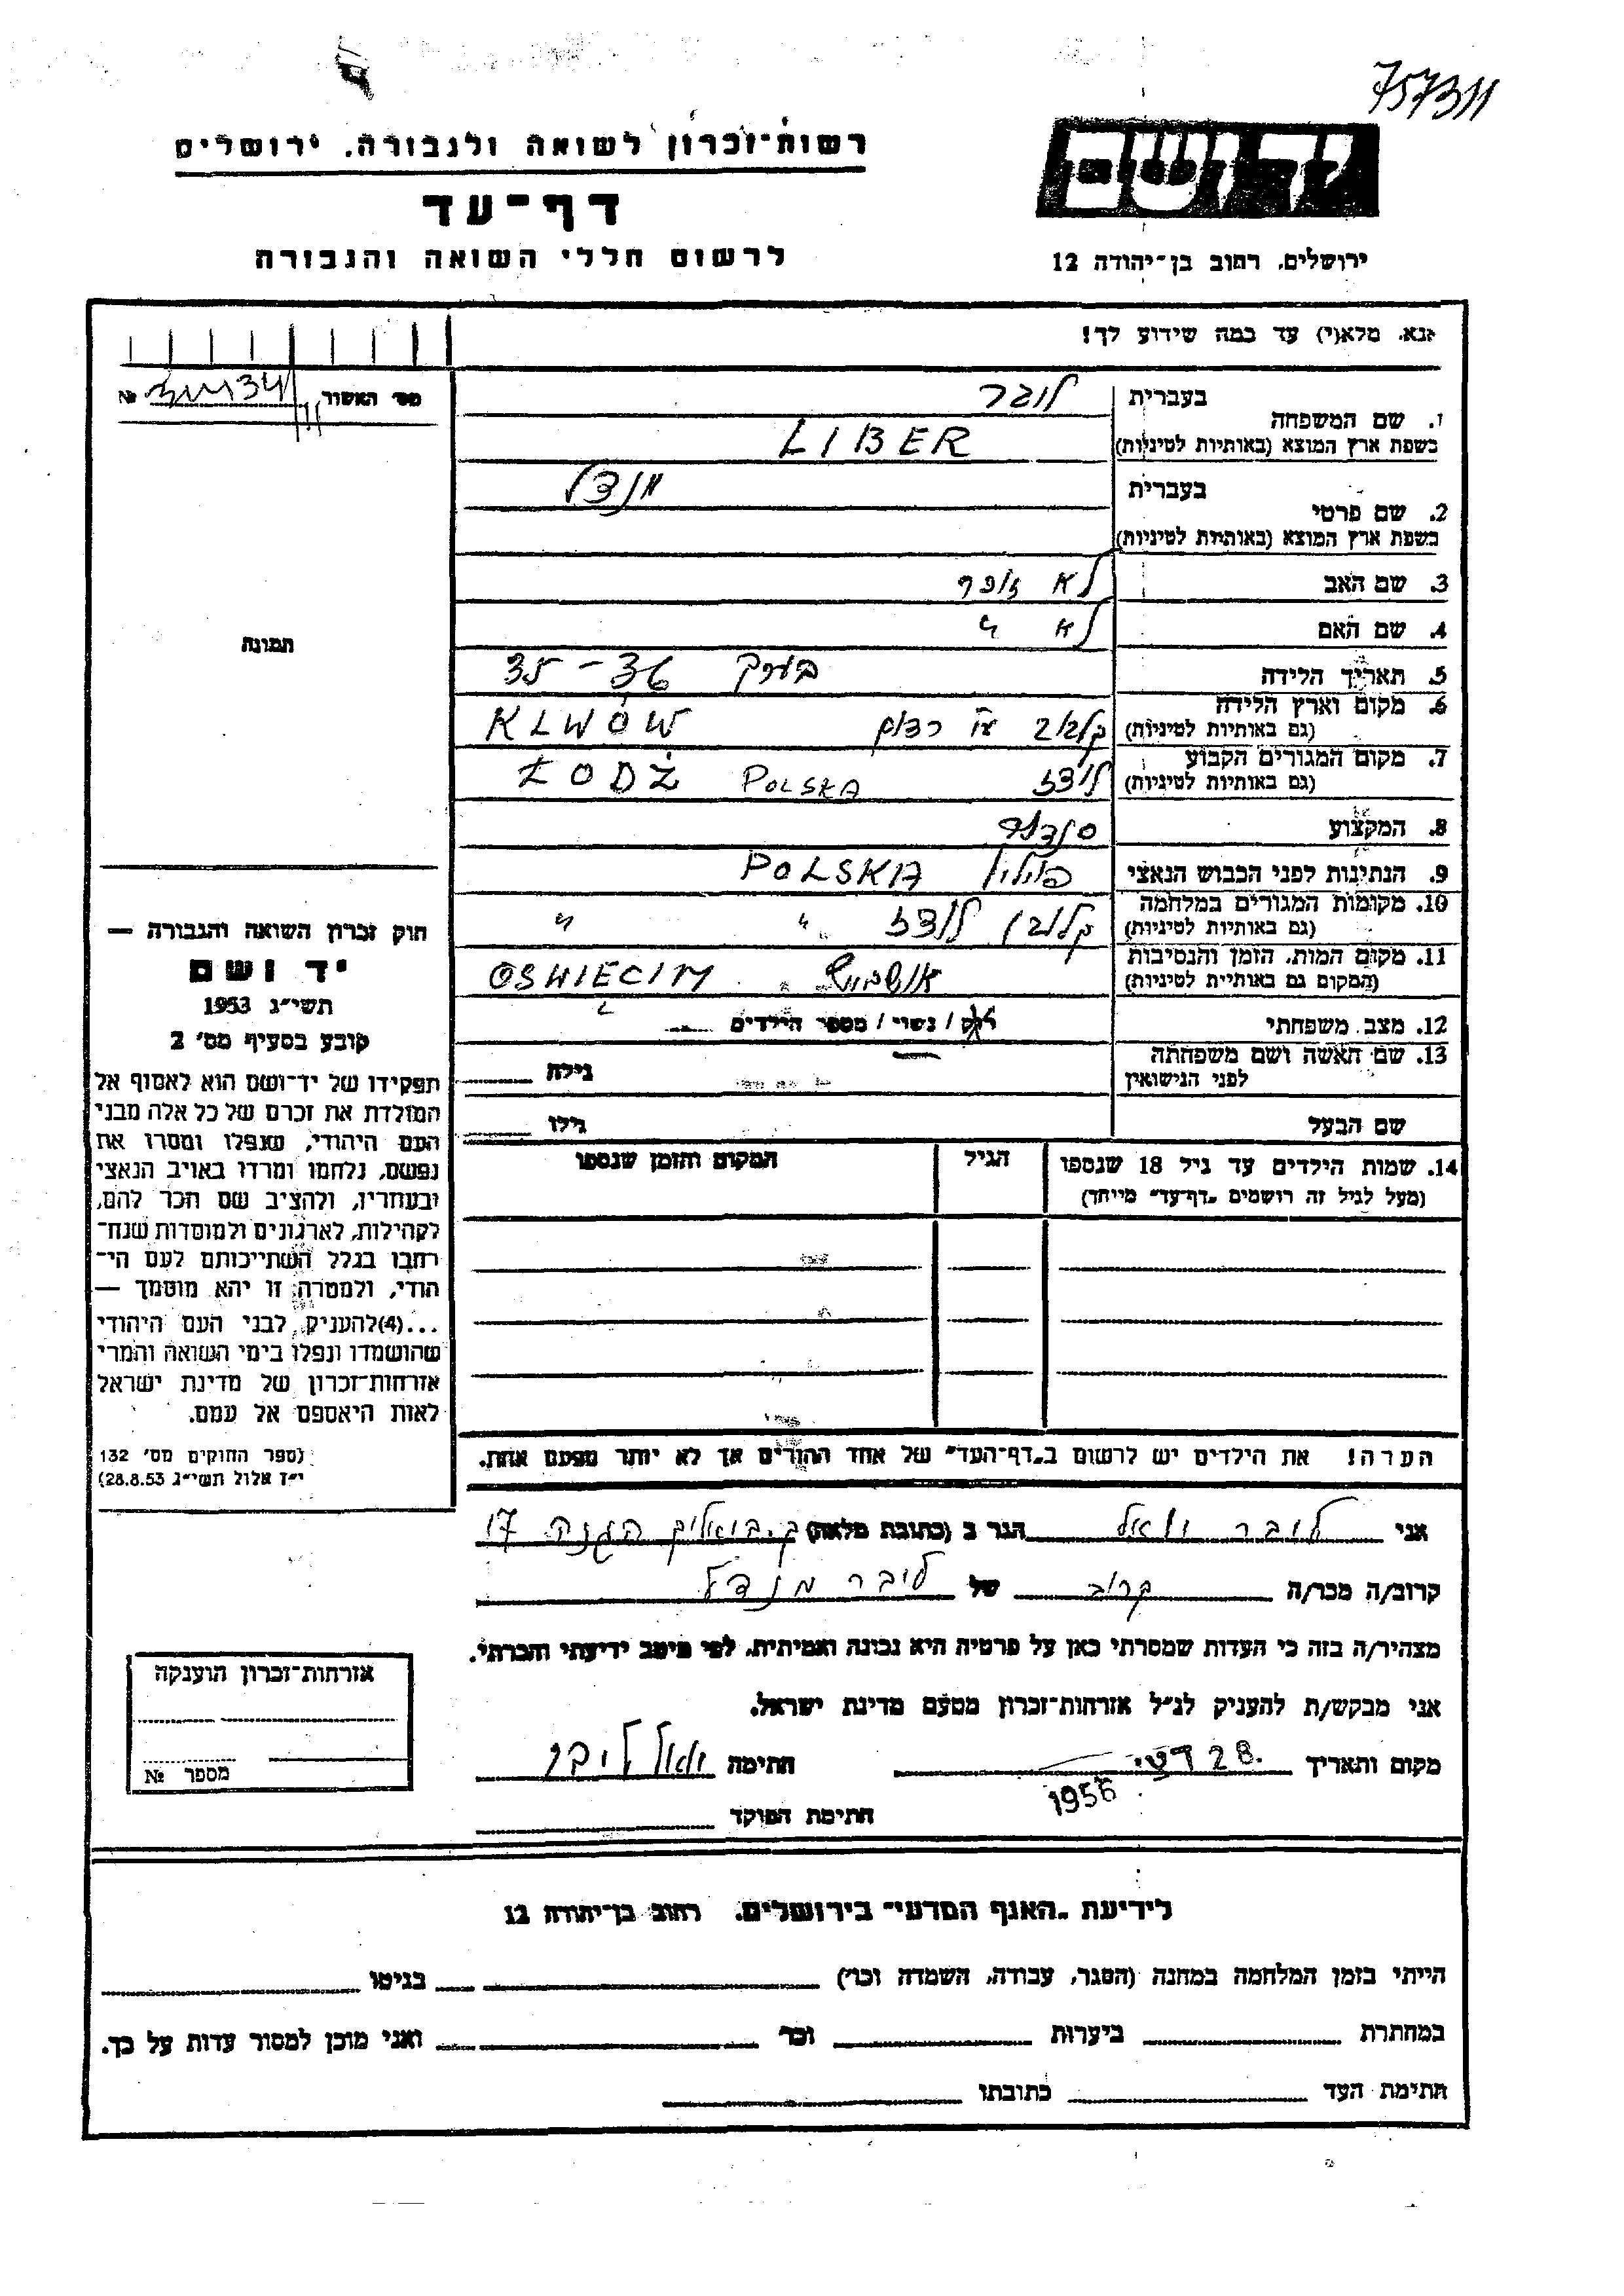 757311
רשות־זכרון לשואה ולגבורה, ירושלים
דף־עד
לרשום חללי השואה והגבורה
ירושלים, רחוב בן־יהודה 12
נא מלא(י) עד כמה שידוע לך!
מס׳ האשור №
1. שם המשפחה
בעברית
ליבר
בשפת ארץ המוצא (באותיות לטיניות)
LIBER
2. שם פרטי
בעברית
מנדל
בשפת ארץ המוצא (באותיות לטיניות)
3. שם האב
לא זוכר
4. שם האם
לא "
5. תאריך הלידה
בערך 35-36
6. מקום וארץ הלידה
(גם באותיות לטיניות)
KLWÓW
7. מקום המגורים הקבוע
(גם באותיות לטיניות)
לודז POLSKA ŁODŻ
8. המקצוע
סנדלר
9. הנתינות לפני הכבוש הנאצי
פולין POLSKA
10. מקומות המגורים במלחמה
(גם באותיות לטיניות)
לודז " "
11. מקום המות, הזמן והנסיבות
(המקום גם באותיות לטיניות)
אושביץ OSWIECIM
12. מצב משפחתי
רוק / נשוי / מספר הילדים
13. שם האשה ושם משפחתה
לפני הנישואין
גילה
שם הבעל
גילו
14. שמות הילדים עד גיל 18 שנספו
(מעל לגיל זה רושמים „דף־עד" מיוחד)
הגיל
המקום והזמן שנספו
תמונה
חוק זכרון השואה והגבורה —
יד ושם
תשי״ג 1953
קובע בסעיף מס׳ 2
תפקידו של יד־ושם הוא לאסוף אל
המולדת את זכרם של כל אלה מבני
העם היהודי, שנפלו ומסרו את
נפשם, נלחמו ומרדו באויב הנאצי
ובעוזריו, ולהציב שם וזכר להם,
לקהילות, לארגונים ולמוסדות שנח־
רחבו בגלל השתייכותם לעם הי־
הודי, ולמטרה זו יהא מוסמך —
...(4)להעניק לבני העם היהודי
שהושמדו ונפלו בימי השואה והמרי
אזרחות־זכרון של מדינת ישראל
לאות היאספם אל עמם.
(ספר החוקים מס׳ 132
י״ז אלול תשי״ג 28.8.53)
הערה! את הילדים יש לרשום ב„דף־העד" של אחד ההורים אך לא יותר מפעם אחת.
אני ליבר יואל הגר ב (כתובת מלאה) הגנה 17
קרוב/ה מכר/ה קרוב של ליבר מנדל
מצהיר/ה בזה כי העדות שמסרתי כאן על פרטיה היא נכונה ואמיתית, לפי מיטב ידיעתי והכרתי.
אני מבקש/ת להעניק לנ״ל אזרחות־זכרון מטעם מדינת ישראל.
מקום ותאריך 28 דצמ. 1956 חתימה יואל ליבר
חתימת הפוקד
אזרחות־זכרון הוענקה
מספר №
לידיעת „האגף המדעי" בירושלים, רחוב בן־יהודה 12
הייתי בזמן המלחמה במחנה (הסגר, עבודה, השמדה וכו׳) בגיטו
במחתרת ביערות וכו׳ ואני מוכן למסור עדות על כך.
חתימת העד כתובתו